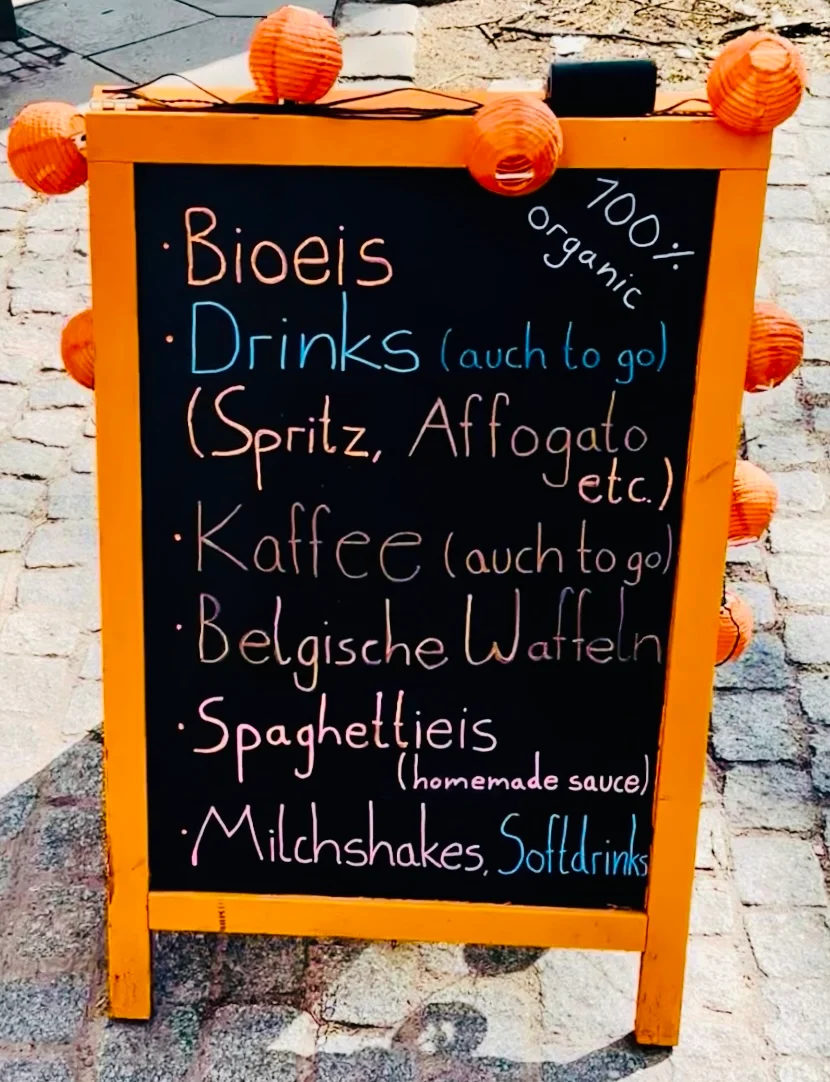 100%
organic
· Bioeis
· Drinks (auch to go)
(Spritz, Affogato
etc.)
· Kaffee (auch to go)
· Belgische Waffeln
· Spaghettieis
(homemade sauce)
· Milchshakes, Softdrinks